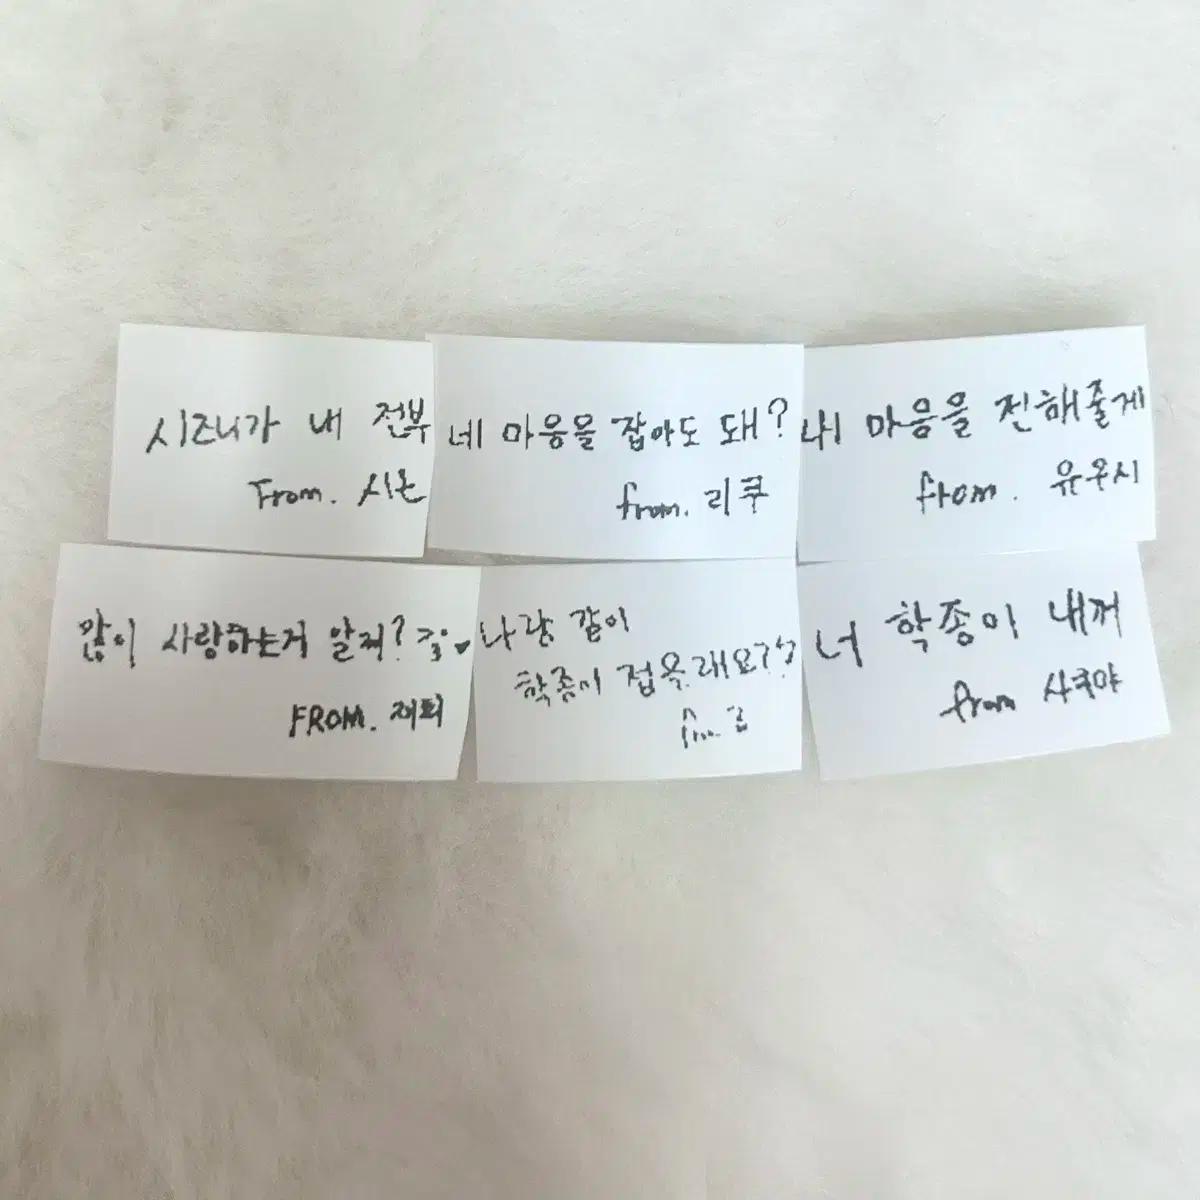 시즈니가 내 전부
From. 시온
네 마음을 잡아도 돼?
from. 리쿠
내 마음을 전해줄게
from. 유우시
많이 사랑하는거 알지?
FROM. 재희
나랑 같이
학종이 접을래요??
from
너 학종이 내꺼
from 사쿠야